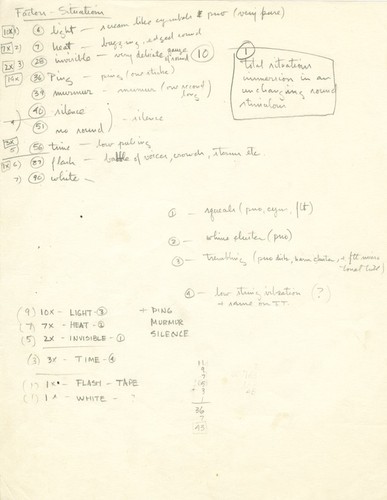 Situation
10x 1) 6 light - scream like cymbals + pno (very pure)
7x 2 9 heat - buzzing, edged sound
2x 3) 28 invisible - very delicate of sound 10
10x 36 Ping - ping (one strike)
39 murmur - murmur (one second long)
40 silence
51 no sound) - silence
3x 5 56 time - low pulsing
3x 6) 87 flash - of voices, crowds, storms etc
7) 90 white -
1
total situations
immersion in an
unchanging sound
situation
1 - squeals (pno, cym, flt)
2 - whine cluster (pno)
3 - trembling (pno horn cluster, + flt
4 - low string vibration (?)
+ same on TT.
(9) 10x - LIGHT - 3 + PING
(7) 7x - HEAT - 2 MURMUR
(5) 2x - INVISIBLE - 1 SILENCE
(3) 3x - TIME - 4
(1) 1x - FLASH - TAPE
(1) 1x - WHITE - ?
9
7
9
1
36
9
45